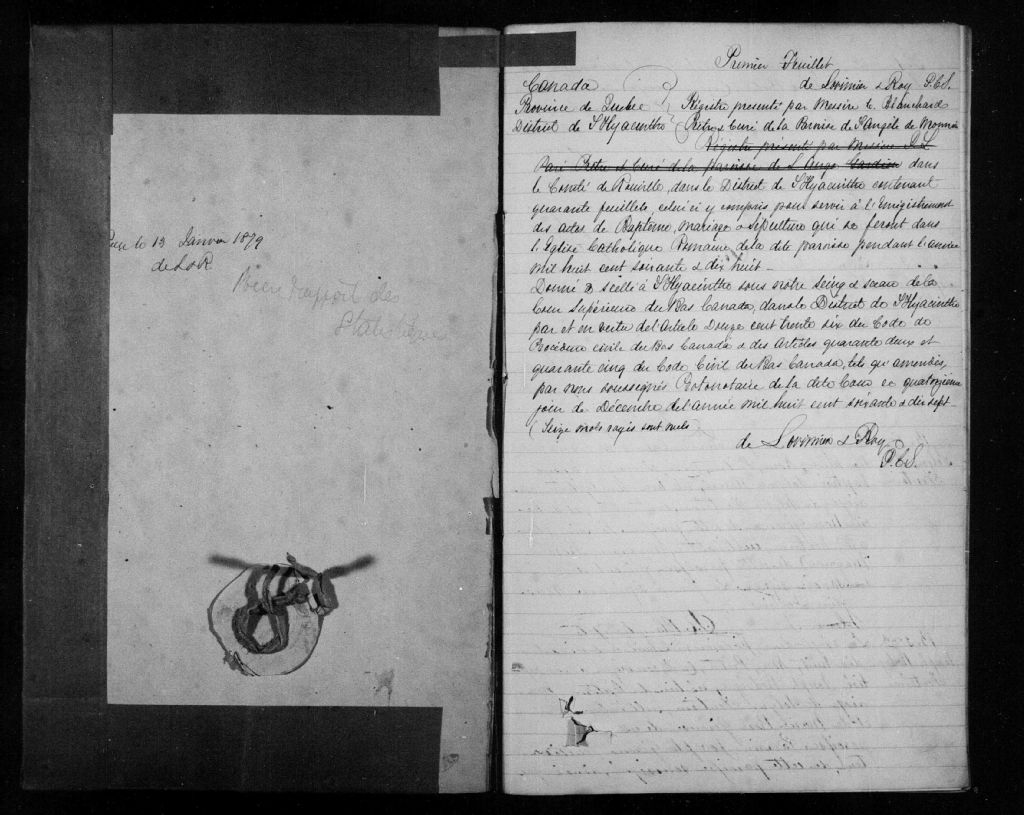 le 13 Janvier 1879
de L & R
rapport des
Premier Feuillet
de Lorimier & Roy P.C.S.
Canada
Province de Quebec } Régistre présenté par Messire C. Blanchard
District de St Hyacinthe } Prêtre & Curé de la Paroisse de Ste Angèle de Monnoir
Régistre présenté par Messire
Prêtre & Curé de la Paroisse de St Ange Gardien dans
le Comté de Rouville, dans le District de St Hyacinthe contenant
quarante feuillets, celui ci y compris pour servir à l'Enregistrement
des actes de Baptême, mariage & Sépulture qui se feront dans
l'Eglise Catholique Romaine de la dite paroisse pendant l'année
mil huit cent soixante & dix huit.
Donné & scellé à St Hyacinthe sous notre seing & sceau de la
Cour Supérieure du Bas Canada, dans le District de St Hyacinthe
par et en vertu de l'Article Douze cent trente six du Code de
Procédure civile du Bas Canada & des Articles quarante deux et
quarante cinq du Code Civil du Bas Canada, tels qu'amendés,
par nous soussignés Protonotaire de la dite Cour ce quatorzième
jour de Décembre de l'année mil huit cent soixante & dix sept
( Seize mots rayés sont nuls
de Lorimier & Roy
P.C.S.